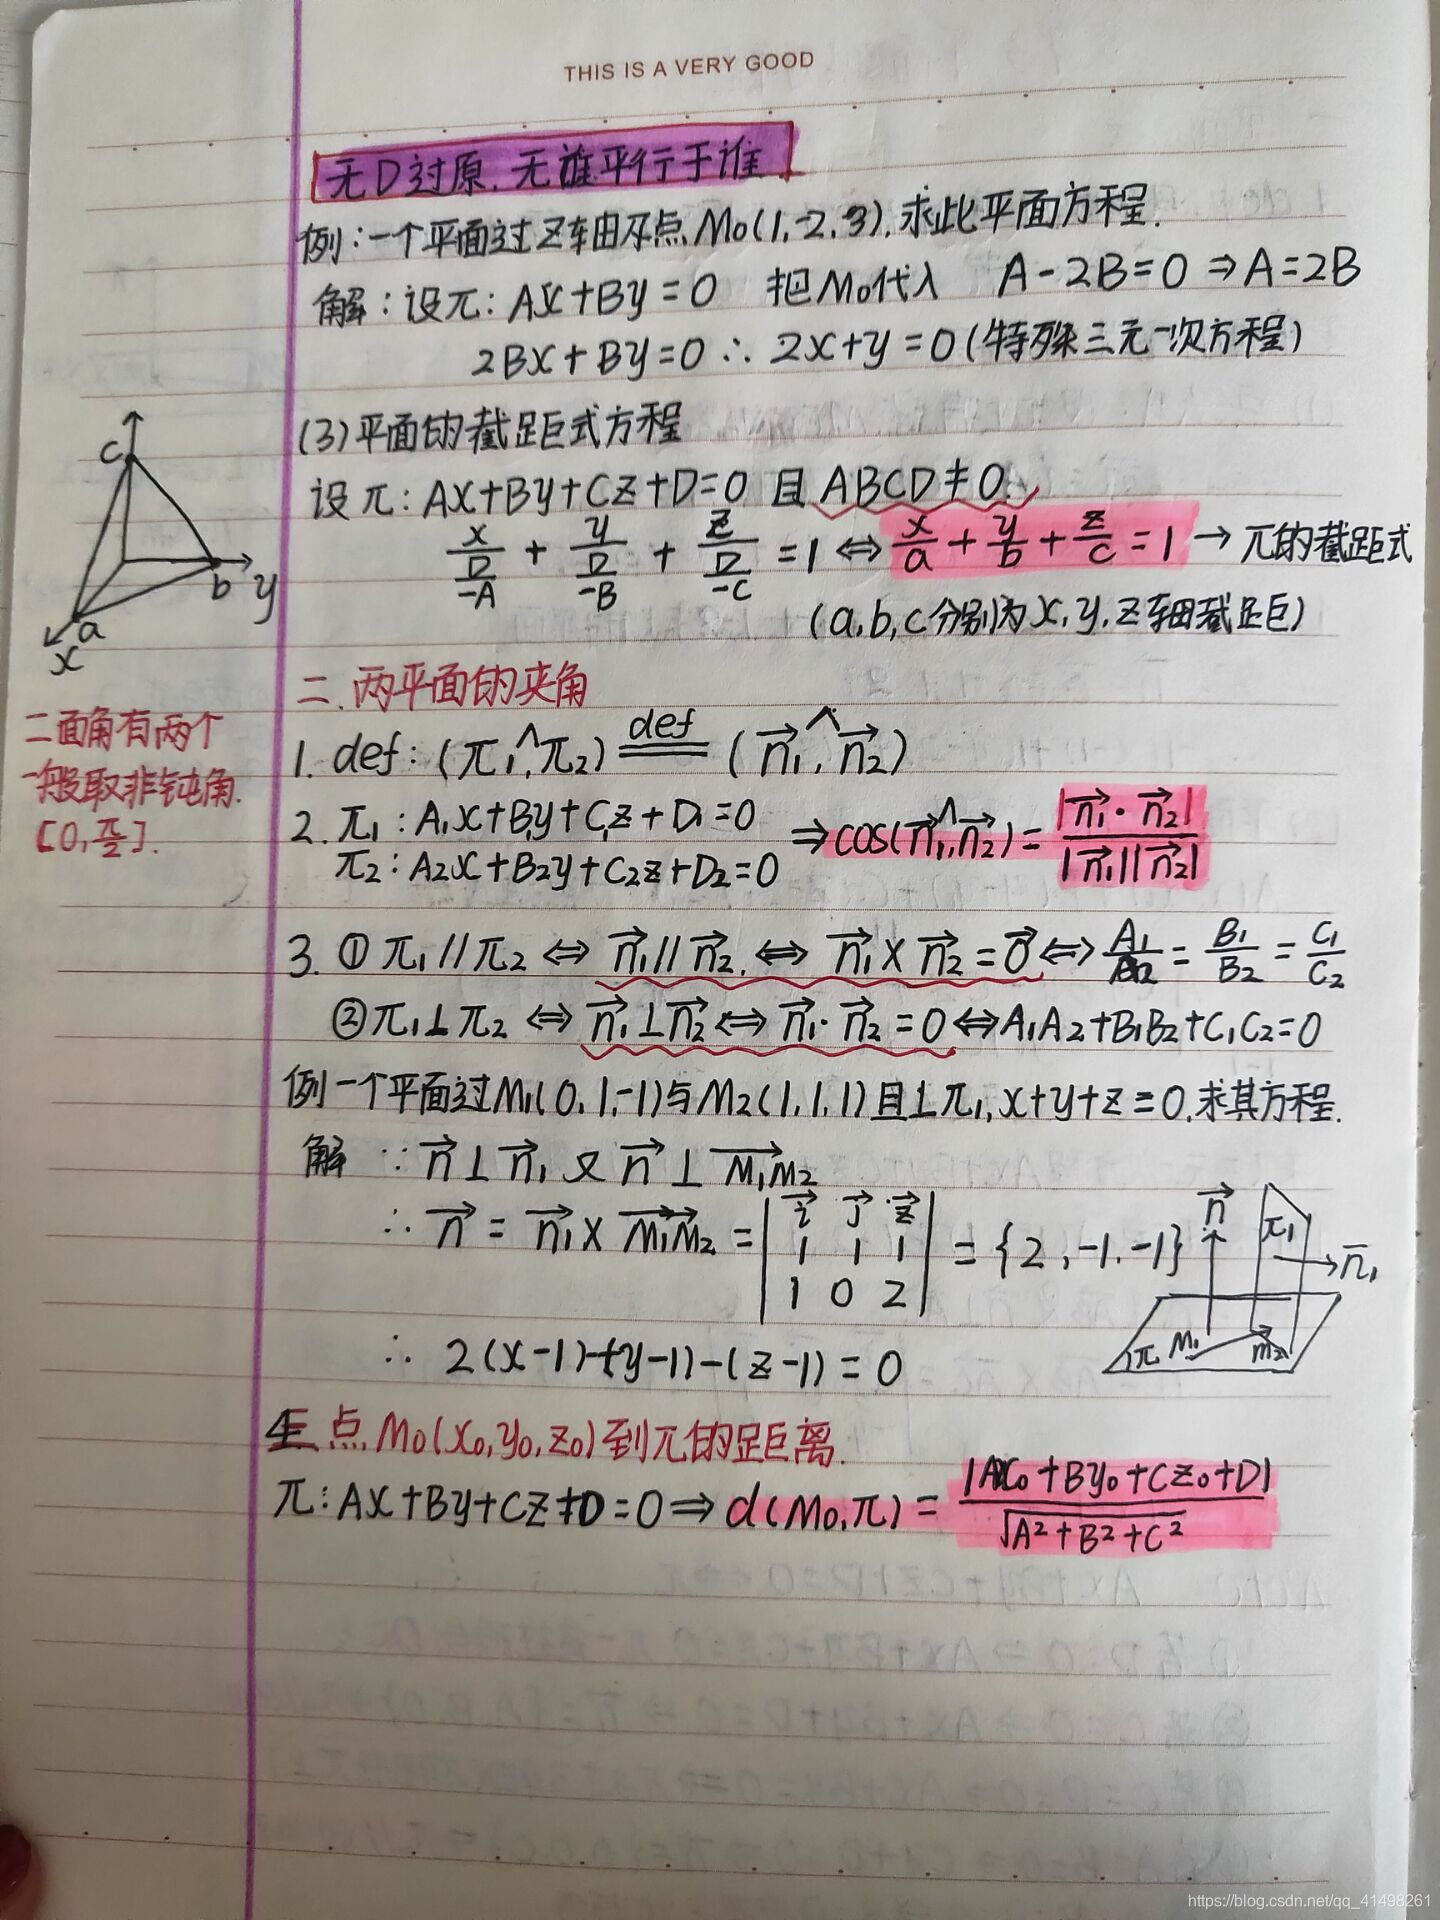 THIS IS A VERY GOOD
无D过原.无谁平行于谁
例:一个平面过Z轴及点M₀(1,-2,3),求此平面方程.
解:设π: Ax+By=0 把M₀代入 A-2B=0 ⇒A=2B
2Bx+By=0 ∴ 2x+y=0(特殊三元一次方程)
(3)平面的截距式方程
设π: Ax+By+Cz+D=0 且ABCD≠0.
x/(D/-A) + y/(D/-B) + z/(D/-C) =1 ⇔ x/a + y/b + z/c =1 → π的截距式
(a,b,c分别为x,y,z轴截距)
c
b
y
a
x
二.两平面的夹角
二面角有两个
一般取非钝角.
[0,π/2].
1. def: (π₁^,π₂) =def= (n₁→^,n₂→)
2. π₁: A₁x+B₁y+C₁z+D₁=0
π₂: A₂x+B₂y+C₂z+D₂=0 ⇒cos(n₁→^,n₂→)= |n₁→·n₂→|/|n₁→||n₂→|
3. ① π₁//π₂ ⇔ n₁→//n₂→. ⇔ n₁→×n₂→=0→ ⇔ A₁/A₂ = B₁/B₂ = C₁/C₂
②π₁⊥π₂ ⇔ n₁→⊥n₂→ ⇔ n₁→·n₂→=0 ⇔A₁A₂+B₁B₂+C₁C₂=0
例一个平面过M₁(0,1,-1)与M₂(1,1,1)且⊥π₁,x+y+z=0.求其方程.
解 ∵ n→⊥n₁→ 又 n→⊥M₁M₂→
∴ n→ = n₁→×M₁M₂→ = |i→ j→ z→
1 1 1
1 0 2| = {2,-1,-1}
n→
π₁
n₁
π
M₁
M₂
∴ 2(x-1)-(y-1)-(z-1)=0
三 点M₀(x₀,y₀,z₀)到π的距离.
π: Ax+By+Cz+D=0⇒ d(M₀,π)= |Ax₀+By₀+Cz₀+D|/√A²+B²+C²
https://blog.csdn.net/qq_41498261